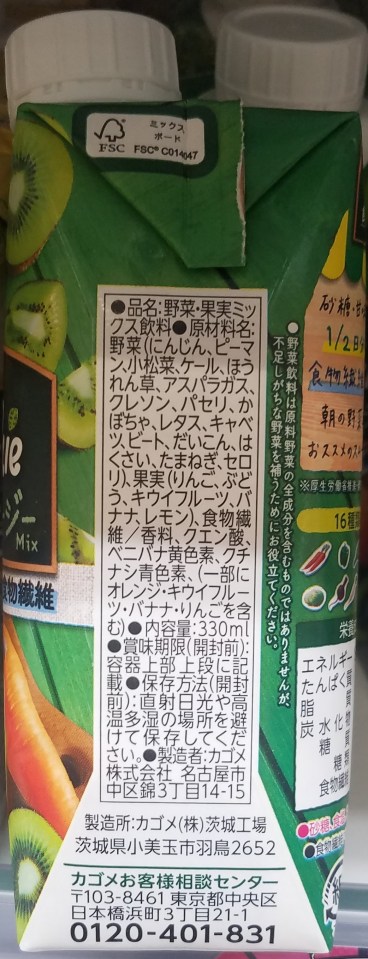 ミックス
ボード
FSC
FSC® C014047
●品名:野菜・果実ミッ
クス飲料●原材料名:
野菜(にんじん、ピーマ
ン、小松菜、ケール、ほう
れん草、アスパラガス、
クレソン、パセリ、か
ぼちゃ、レタス、キャベ
ツ、ビート、だいこん、は
くさい、たまねぎ、セロ
リ)、果実(りんご、ぶど
う、キウイフルーツ、バ
ナナ、レモン)、食物繊
維／香料、クエン酸、
ベニバナ黄色素、クチ
ナシ青色素、(一部に
オレンジ・キウイフルー
ツ・バナナ・りんごを含
む)●内容量:330ml
●賞味期限(開封前):
容器上部上段に記
載●保存方法(開封
前):直射日光や高
温多湿の場所を避
けて保存してくだ
さい。●製造者:カゴメ
株式会社 名古屋市
中区錦3丁目14-15
●野菜飲料は原料野菜の全成分を含むものではありませんが、
不足しがちな野菜を補うためにお役立てください。
製造所:カゴメ(株)茨城工場
茨城県小美玉市羽鳥2652
カゴメお客様相談センター
〒103-8461 東京都中央区
日本橋浜町3丁目21-1
0120-401-831
ジー
Mix
食物繊維
砂糖・甘
1/2日分
食物繊維
朝の野菜
おススメのス
16種
栄養
エネルギー
たんぱく質
脂 質
炭水化物
糖 質
糖
食物繊維